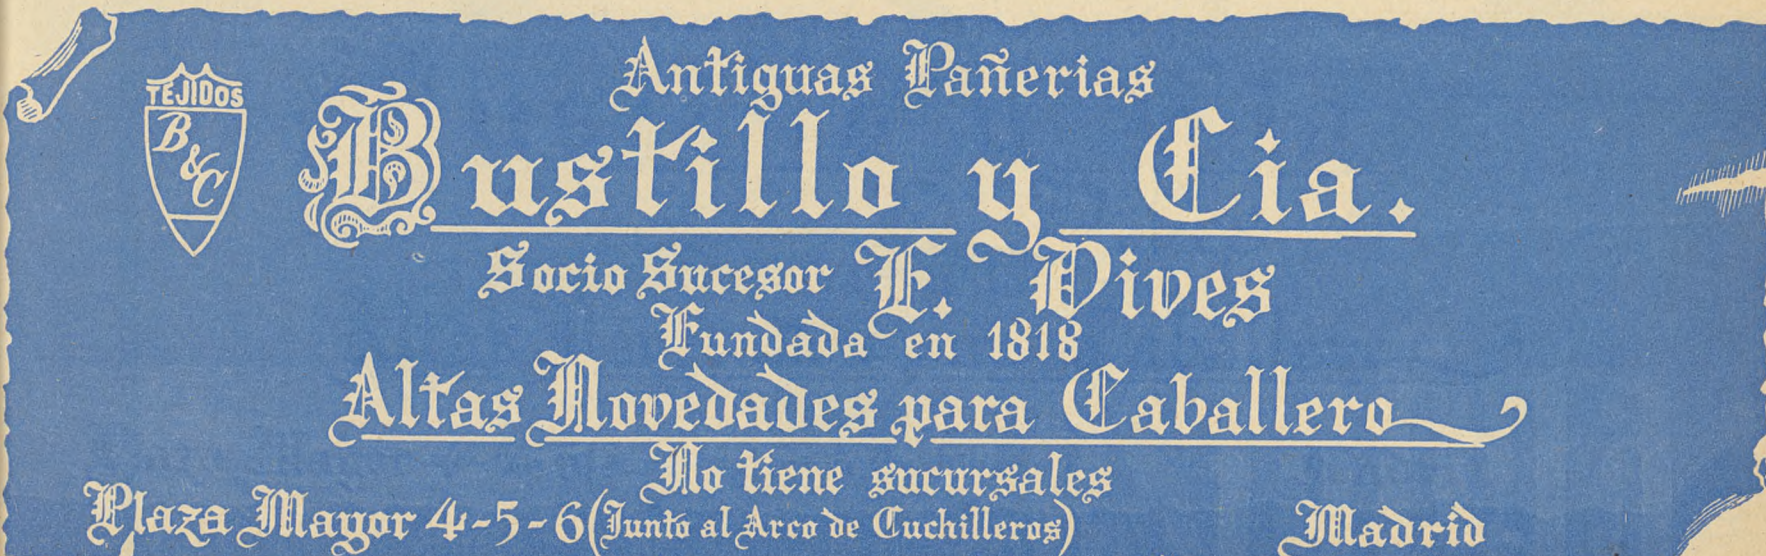 TEJIDOS
B & C
Antiguas Pañerias
Bustillo y Cia.
Socio Sucesor E. Vives
Fundada en 1818
Altas Novedades para Caballero
No tiene sucursales
Plaza Mayor 4-5-6 (Junto al Arco de Cuchilleros) Madrid